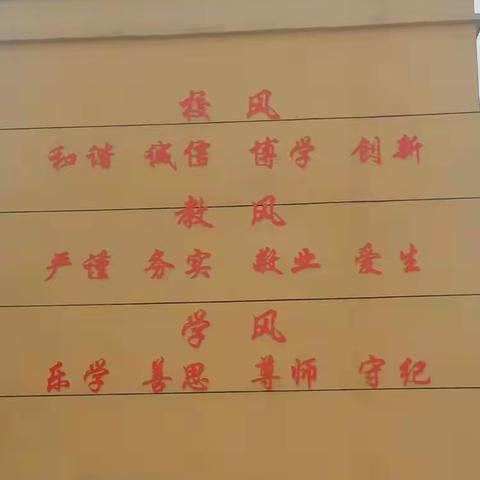 校 风
和谐 诚信 博学 创新
教 风
严谨 务实 敬业 爱生
学 风
乐学 善思 尊师 守纪